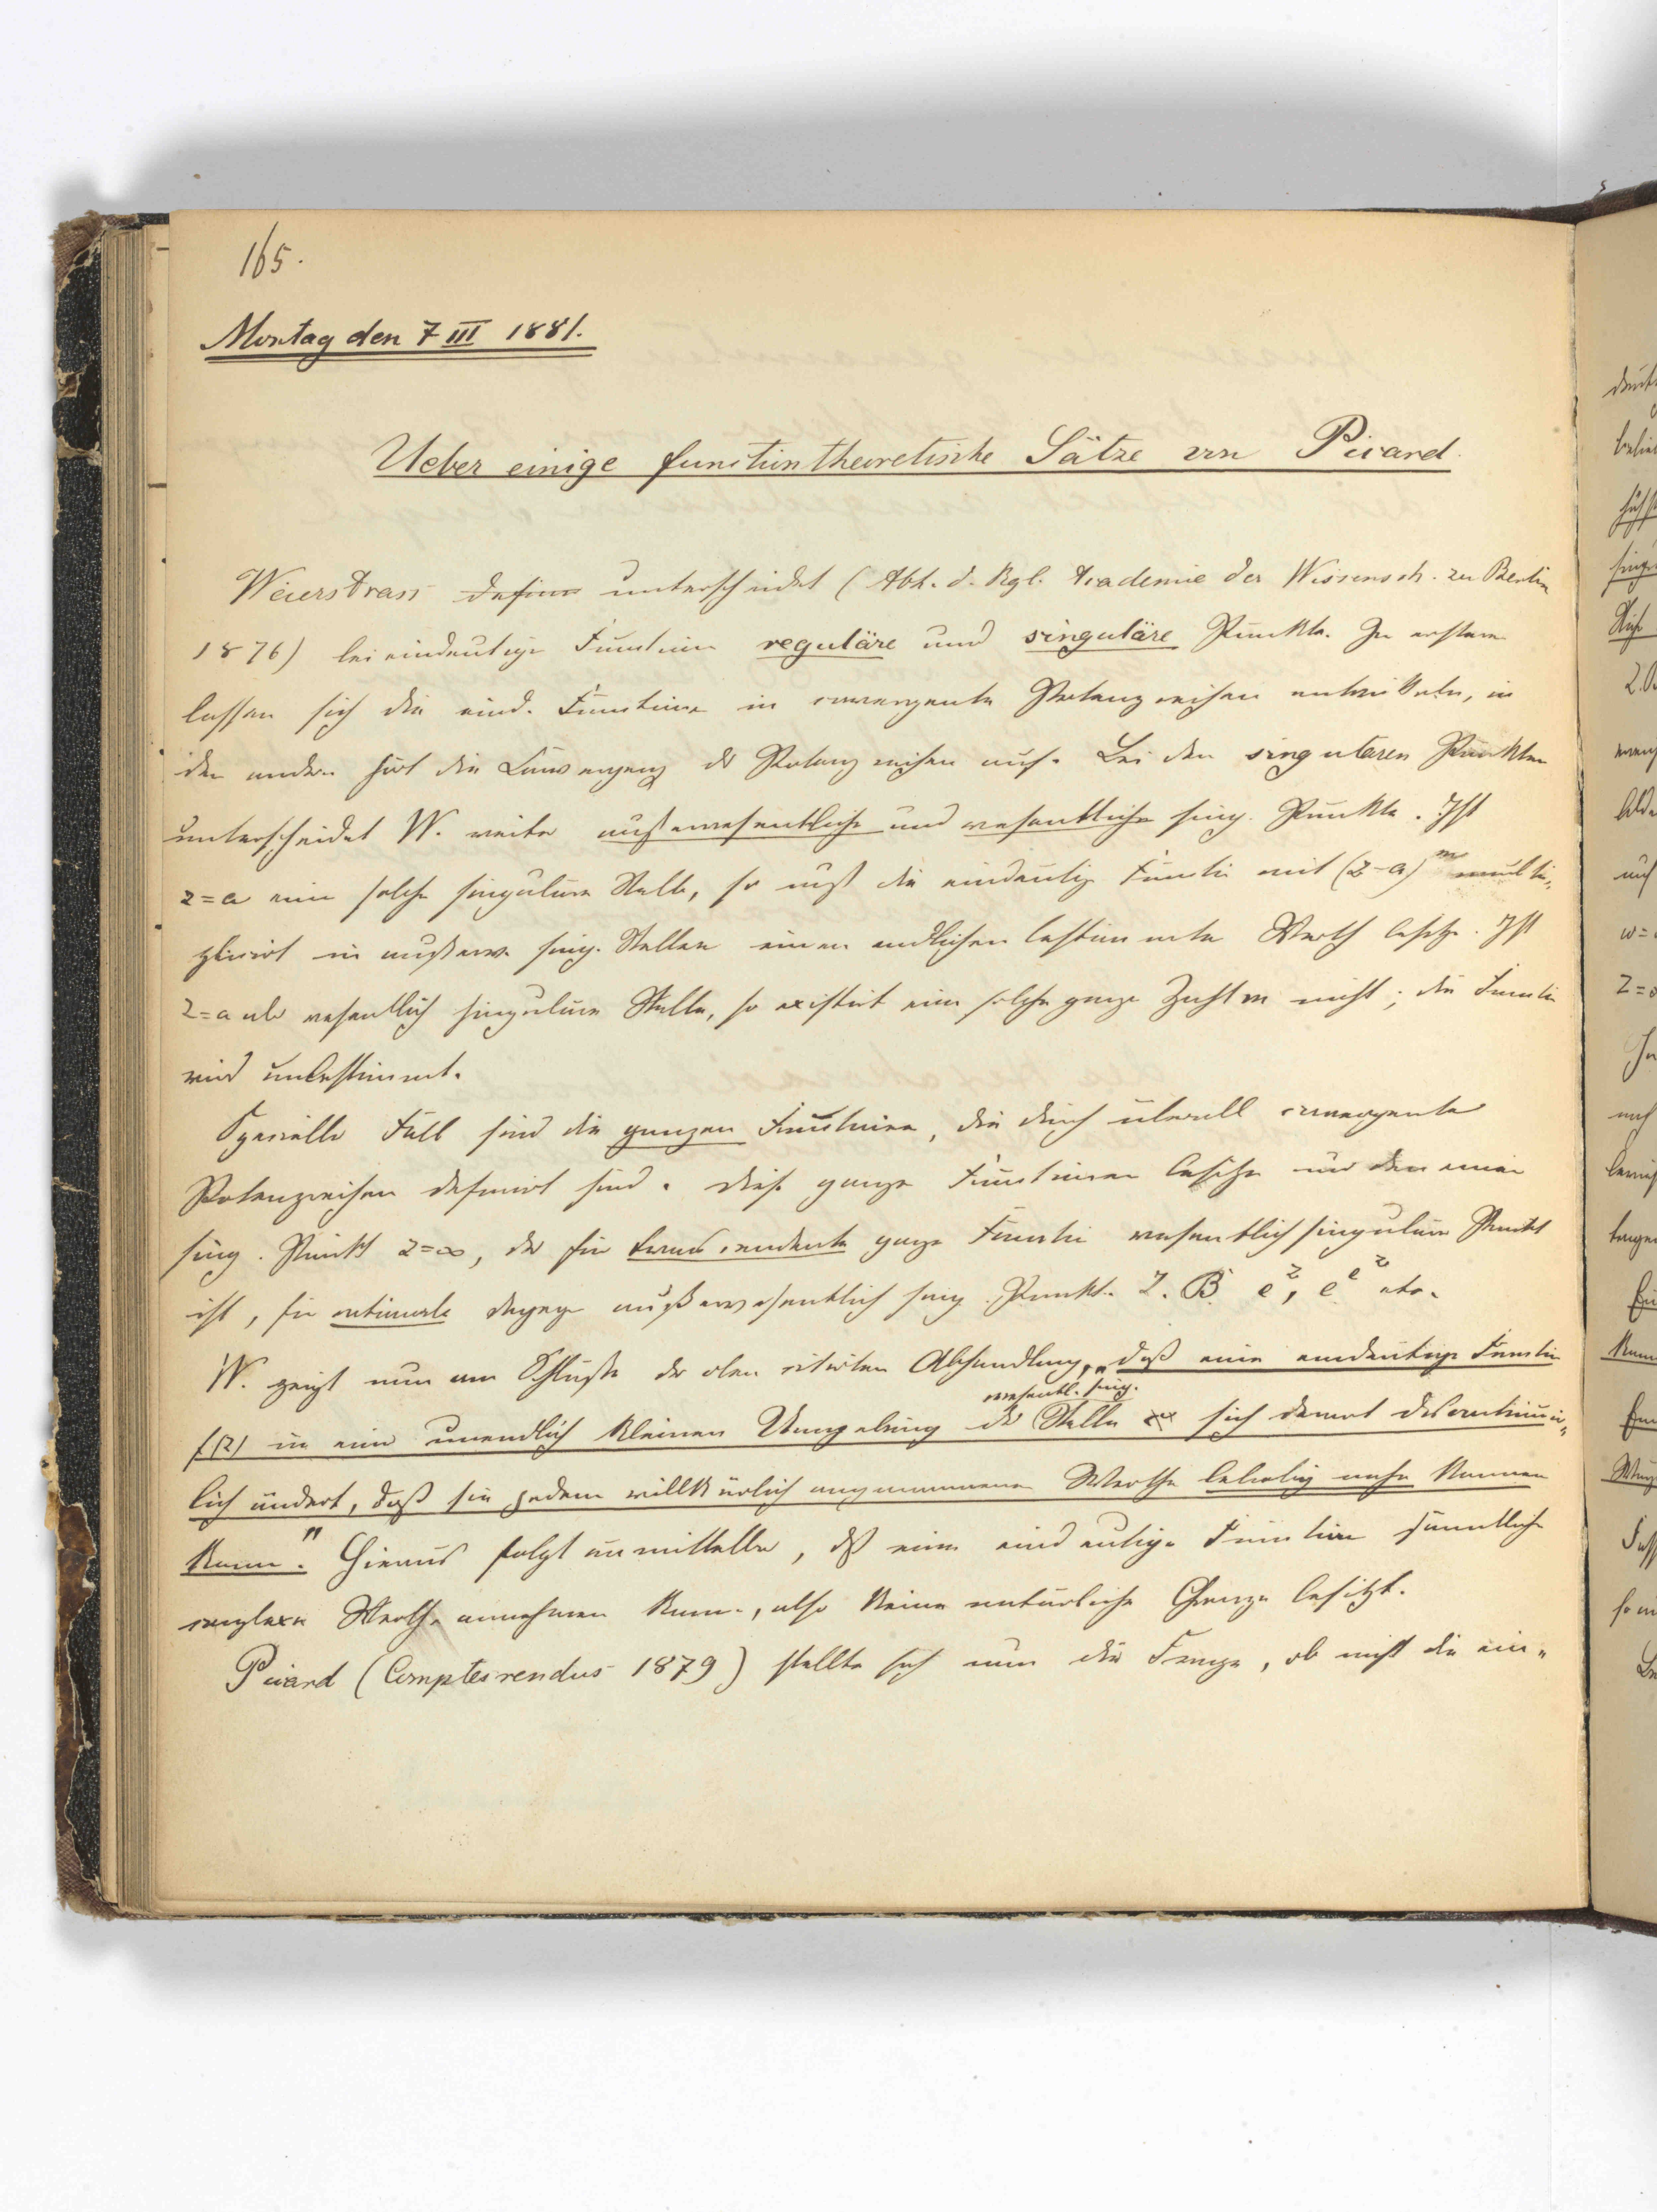 165.
Montag den 7 III 1881.
Ueber einige functiontheoretische Sätze von Picard.
Weierstrass unterscheidet (Abh. d. Kgl. Academie der Wissensch. zu Berlin
1876) bei eindeutigen Functionen reguläre und singuläre Punkte. In ersteren
lassen sich die eind. Functionen in convergente Potenzreihen entwickeln, in
den andern hört die Convergenz der Potenzreihen auf. Bei den singulären Punkten
unterscheidet W. weiter außerwesentliche und wesentliche sing. Punkte. Ist
z=a eine solche singuläre Stelle, so muß die eindeutige Function mit (z-a)^m multi-
plicirt in außerw. sing. Stellen einen endlichen bestimmten Werth besitzen. Ist
z=a als wesentlich singuläre Stelle, so existirt eine solche ganze Zahl m nicht; die Function
wird unbestimmt.
Specielle Fälle sind die ganzen Functionen, die durch überall convergente
Potenzreihen definirt sind. Diese ganzen Functionen besitzen nur den einen
sing. Punkt z=∞, der für transcendente ganze Function wesentlich singulärer Punkt
ist, für rationale dagegen außerwesentlich sing. Punkt. Z.B. e^z, e^{e^z} etc.
W. zeigt nun am Schluße der oben citirten Abhandlung, „daß eine eindeutige Function
wesentl. sing.
f(z) in einer unendlich kleinen Umgebung der Stelle sich derart discontinuir-
lich ändert, daß sie jedem willkürlich angenommenen Werthe beliebig nahe kommen
kann." Hieraus folgt unmittelbar, dß eine eindeutige Function sämmtliche
complexe Werthe annehmen kann, also keine natürliche Grenze besitzt.
Picard (Comptes rendus 1879) stellte sich nun die Frage, ob nicht die ein-